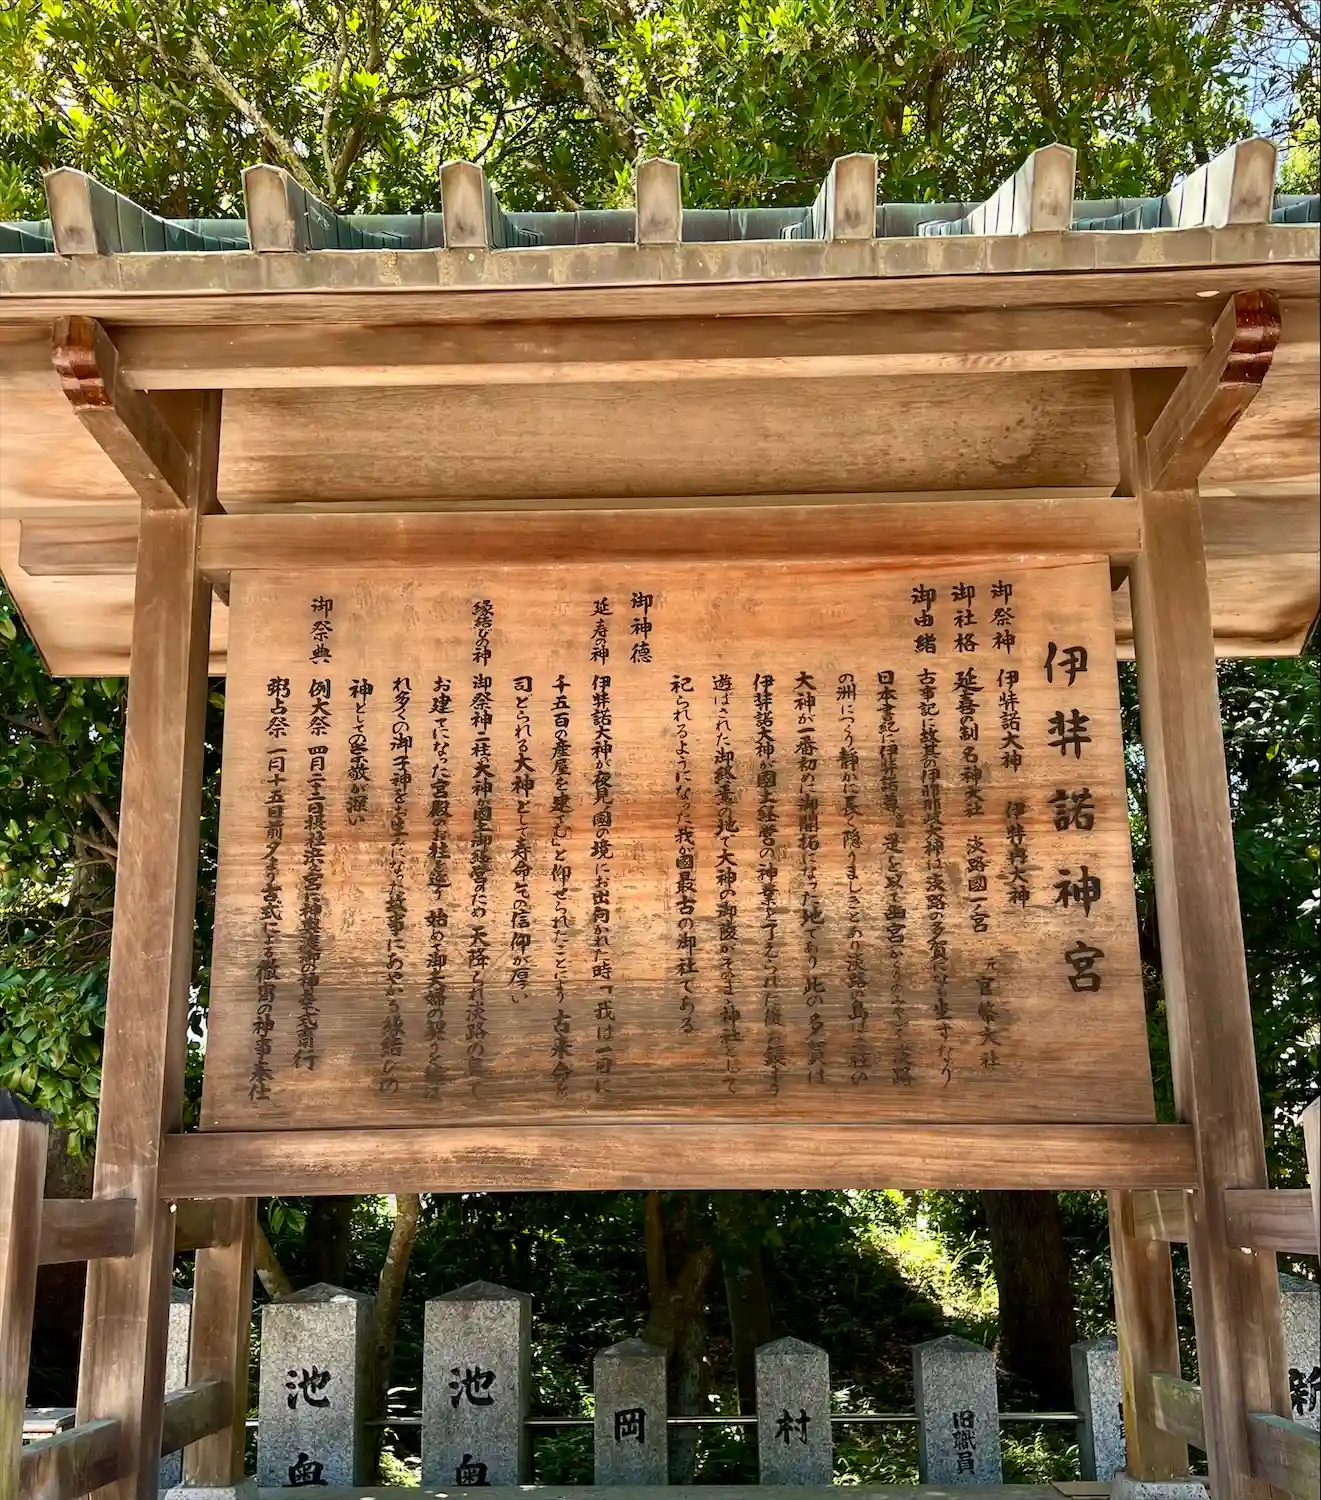 伊弉諾神宮
御祭神 伊弉諾大神 伊弉冉大神
御社格 延喜の制 名神大社 淡路國一ノ宮 元 官幣大社
御由緒 古事記に故其の伊耶那岐大神は淡路の多賀になも坐すなり
日本書紀に 是を以て幽宮を
の洲につくり静かに長く隠りましきとあり淡路の島
大神が一番初めに御開拓になった地であり此の多賀は
伊弉諾大神が國土経営の神業を了えられた後
遊ばされた御終焉の地で大神の御陵がそのまま神社として
祀られるようになった我が國最古の御社である
御神徳
延寿の神 伊弉諾大神が夜見の國の境にお出向かれた時「我は一日に
千五百の産屋を建てむ」と仰せられたことにより古来命を
司どられる大神として寿命乞の信仰が厚い
縁結びの神 御祭神二柱大神が國土御経営のため天降られ淡路の島で
お建てになった宮殿 始めて御夫婦の契りを結
れ多くの御子神をお生みになった故事にあやかり縁結びの
神としての崇敬が深い
御祭典 例大祭 四月二十二日
粥占祭 一月十五日前夕より古式による の神事を奉仕
池 奥
池 奥
岡
村
旧職員
新